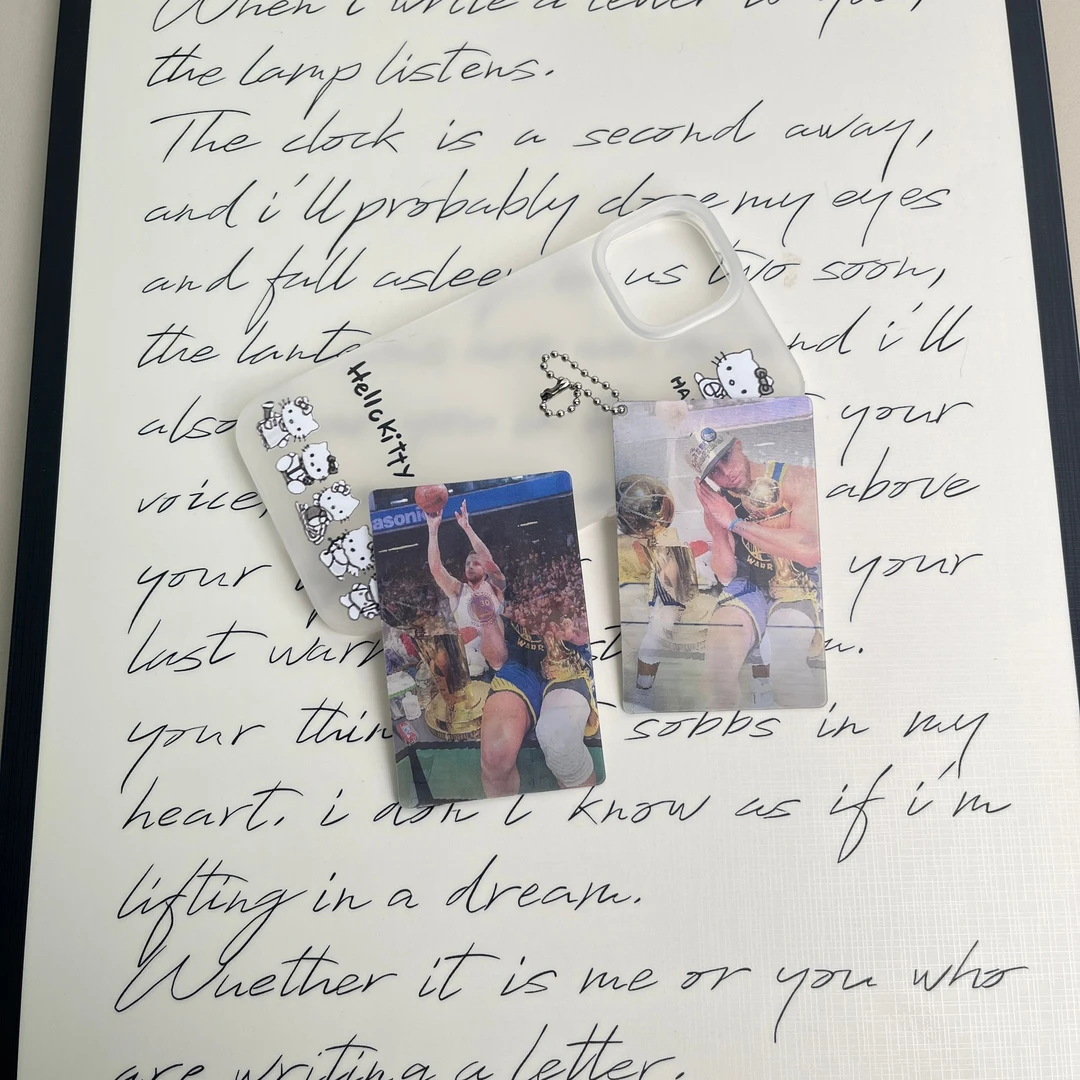 When i write a letter to you,
the lamp listens.
The clock is a second away,
and i'll probably doze my eyes
and fall asleep us two soon,
the lante nd i'll
also your
voice, above
your your
last warm
your thin sobbs in my
heart. i don't know as if i'm
lifting in a dream.
Whether it is me or you who
are writing a letter.
Hello Kitty
HA
asonic
30
WARR
WARR